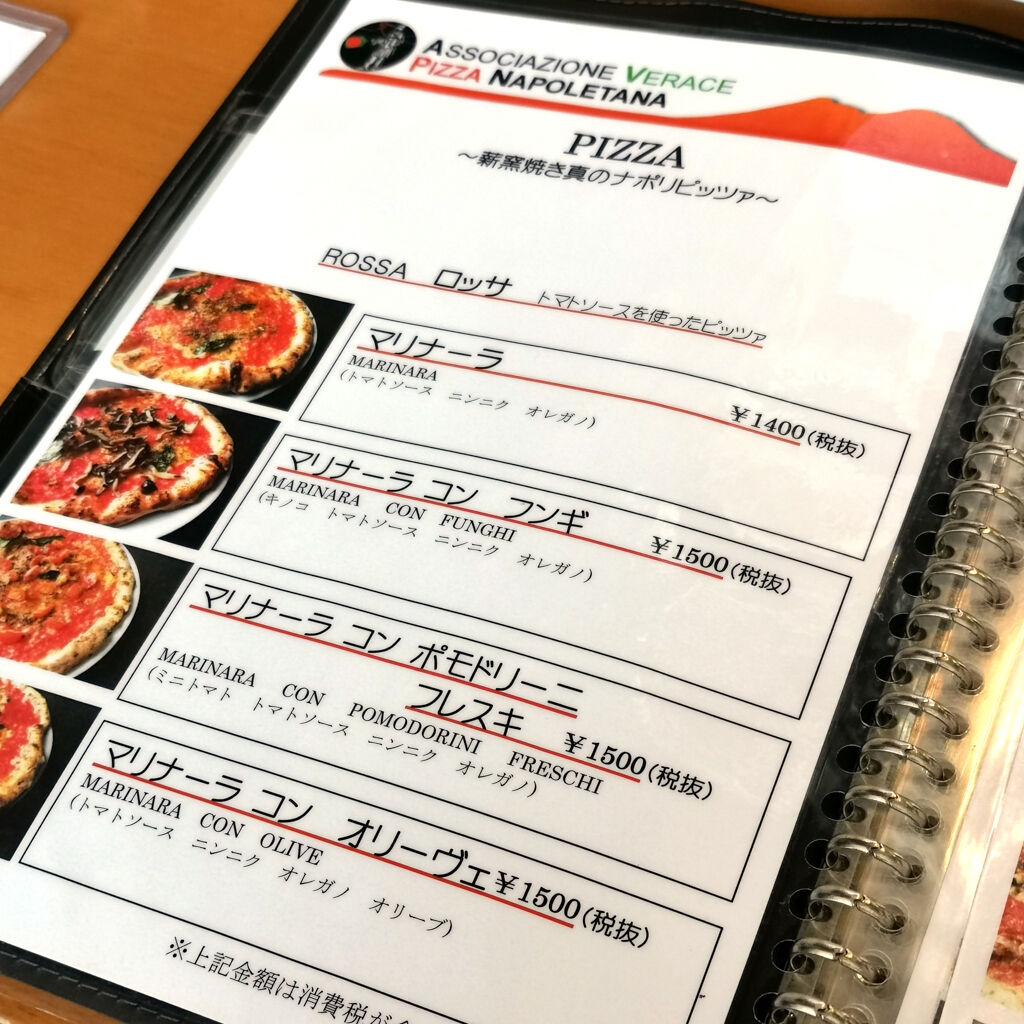 ASSOCIAZIONE VERACE
PIZZA NAPOLETANA
PIZZA
～薪窯焼き真のナポリピッツァ～
ROSSA ロッサ トマトソースを使ったピッツァ
マリナーラ
MARINARA ¥1400(税抜)
(トマトソース ニンニク オレガノ)
マリナーラ コン フンギ
MARINARA CON FUNGHI ¥1500(税抜)
(キノコ トマトソース ニンニク オレガノ)
マリナーラ コン ポモドリーニ
フレスキ ¥1500(税抜)
MARINARA CON POMODORINI FRESCHI
(ミニトマト トマトソース ニンニク オレガノ)
マリナーラ コン オリーヴェ ¥1500(税抜)
MARINARA CON OLIVE
(トマトソース ニンニク オレガノ オリーブ)
※上記金額は消費税が